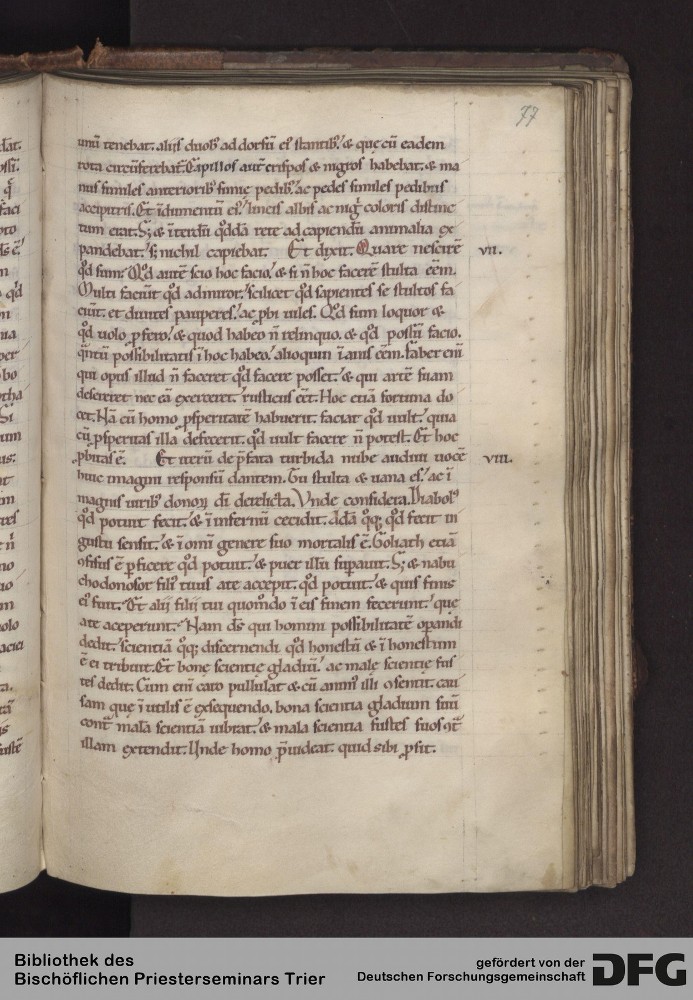 77
unū tenebat. aliis duob; ad dorsū ei; stantib;. & que cū eadem
rota circūferebat̄. Capillos aut̄ crispos & nigros habebat. & ma
nus similes anteriorib; simie pedib;. ac pedes similes pedibus
accipitris. Et īdumentū ei; lineis albis ac nig̃ coloris distinc
tum erat. S; & īterdū q̇ddā rete ad capiendū animalia ex
pandebat. s; nichil capiebat. Et dixit. Quare nescirē
vii.
q̇d sum. Q̇d autē scio hoc facio. & si n̄ hoc facerē stulta eēm.
Multi faciūt q̇d admiror. scilicet q̇d sapientes se stultos fa
ciūt. et diuites pauperes. ac ꝓbi uiles. Q̇d sum loquor &
q̇d uolo ꝓfero. & quod habeo n̄ relinquo. & q̇d possū facio.
q̄ntū possibilitatis ī hoc habeo. alioquin īanis eēm. Faber eni
qui opus illud n̄ faceret q̇d facere posset. & qui artē suam
desereret nec eā exerceret. rusticus eēt. Hoc etiā fortuna do
cet. Nā cū homo ꝓsperitatē habuerit. faciat q̇d uult. quia
cū ꝓsperitas illa defecerit. q̇d uult facere n̄ potest. Et hoc
ꝓbitas ē. Et iterū de p̄fata turbida nube audiui uocē
viii.
huic imagini responsū dantem. Tu stulta & uana es. ac ī
magnis uirib; donoꝝ di derelicta. Unde considera. Diabol;
q̇d potuit fecit. & ī infernū cecidit. Adā q̇q; q̇d fecit in
gustu sensit. & ī omī genere suo mortalis ē. Goliath etiā
ꝯfisus ē ꝑficere q̇d potuit. & puer illū supauit. S; & nabu
chodonosor fili; tuus a te accepit. q̇d potuit. & quis finis
ei; fuit. Et alij filij tui quomodo ī eis finem fecerunt. que
a te aceperunt. Nam ds qui homini possibilitatē oꝑandi
dedit. scientiā q̇q; discernendi q̇d honestū & ī honestum
ē ei tribuit. Et bone scientie gladiū. ac male scientie fus
tes dedit. Cum eni caro pullulat & cū anim; illi ꝯsentit. cau
sam que ī utilis ē exsequendo. bona scientia gladium suū
cont̃ malā scientiā uibrat. & mala scientia fustes suos ꝯt̃
illam extendit. Unde homo p̄uideat. quid sibi ꝓsit.
Bibliothek des
Bischöflichen Priesterseminars Trier
gefördert von der
Deutschen Forschungsgemeinschaft
DFG